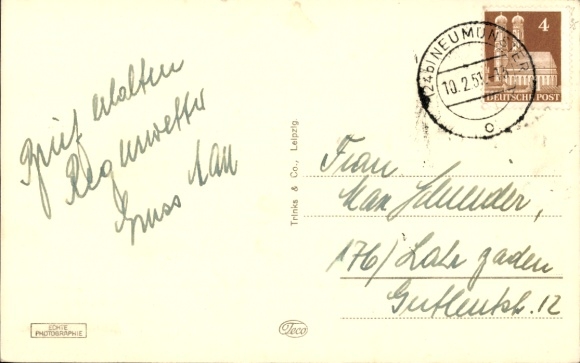 Brief erhalten
Regenwetter
Gruss
Trinks & Co., Leipzig.
ECHTE
PHOTOGRAPHIE
Teco
4
DEUTSCHE POST
(24b) NEUMÜNSTER
10.2.51
c
Frau
Max Schneider,
17b/ Lahr
Gutleutstr. 12